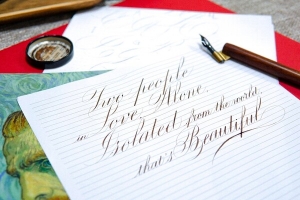 Two people
in Love. Alone.
Isolated from the world.
that's Beautiful